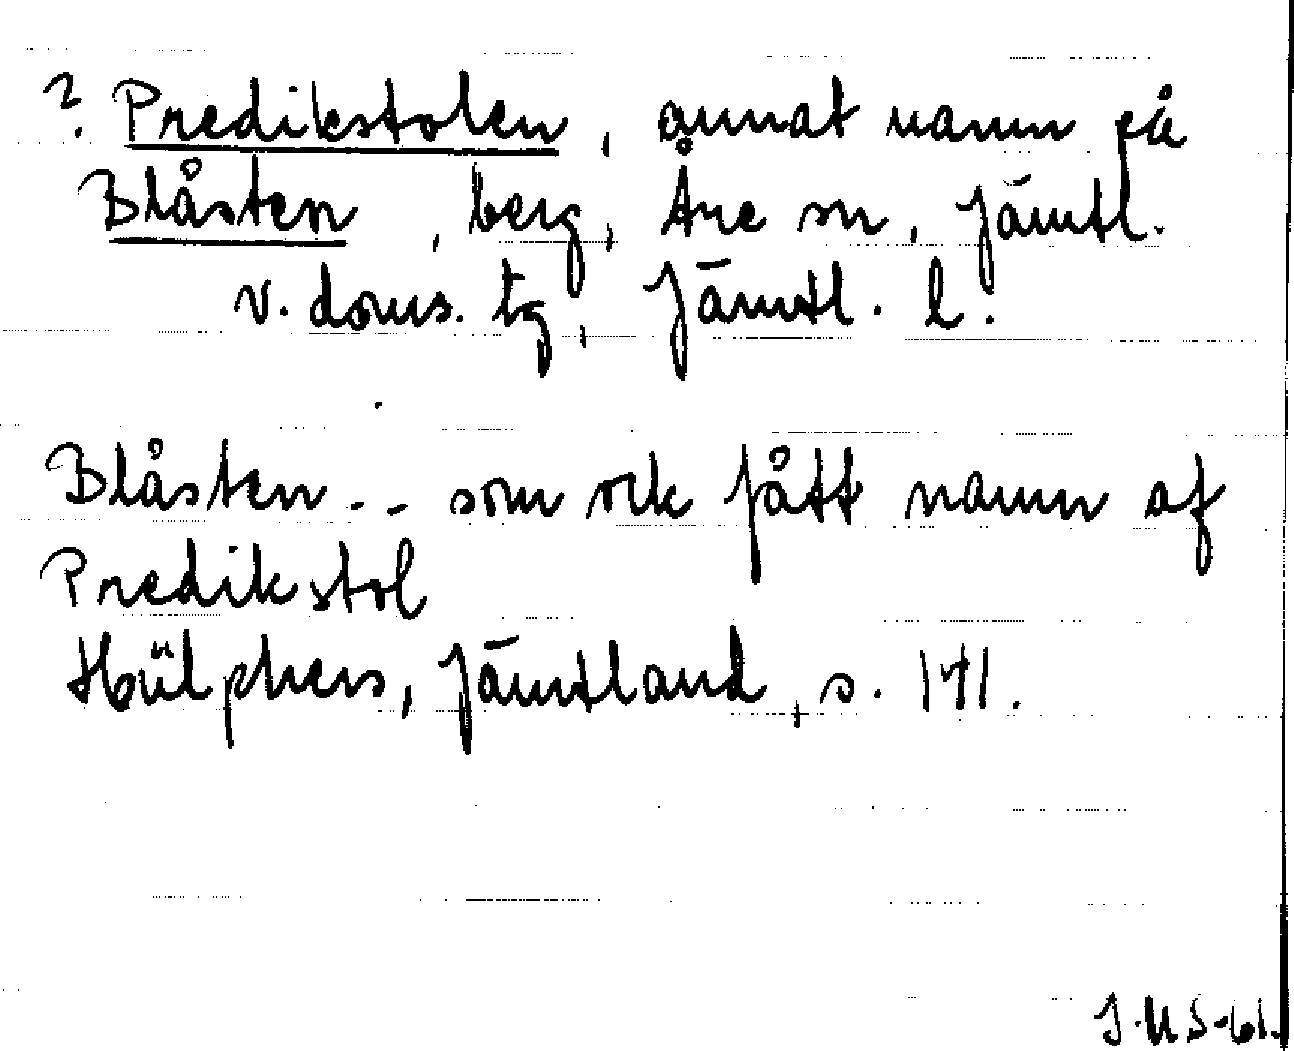 ? Predikstolen, annat namn på
Blåsten, berg, Åre sn, Jämtl.
v. doms. tg, Jämtl. l.
Blåsten - - som ock fått namn af
Predikstol
Hülphers, Jämtland, s. 141.